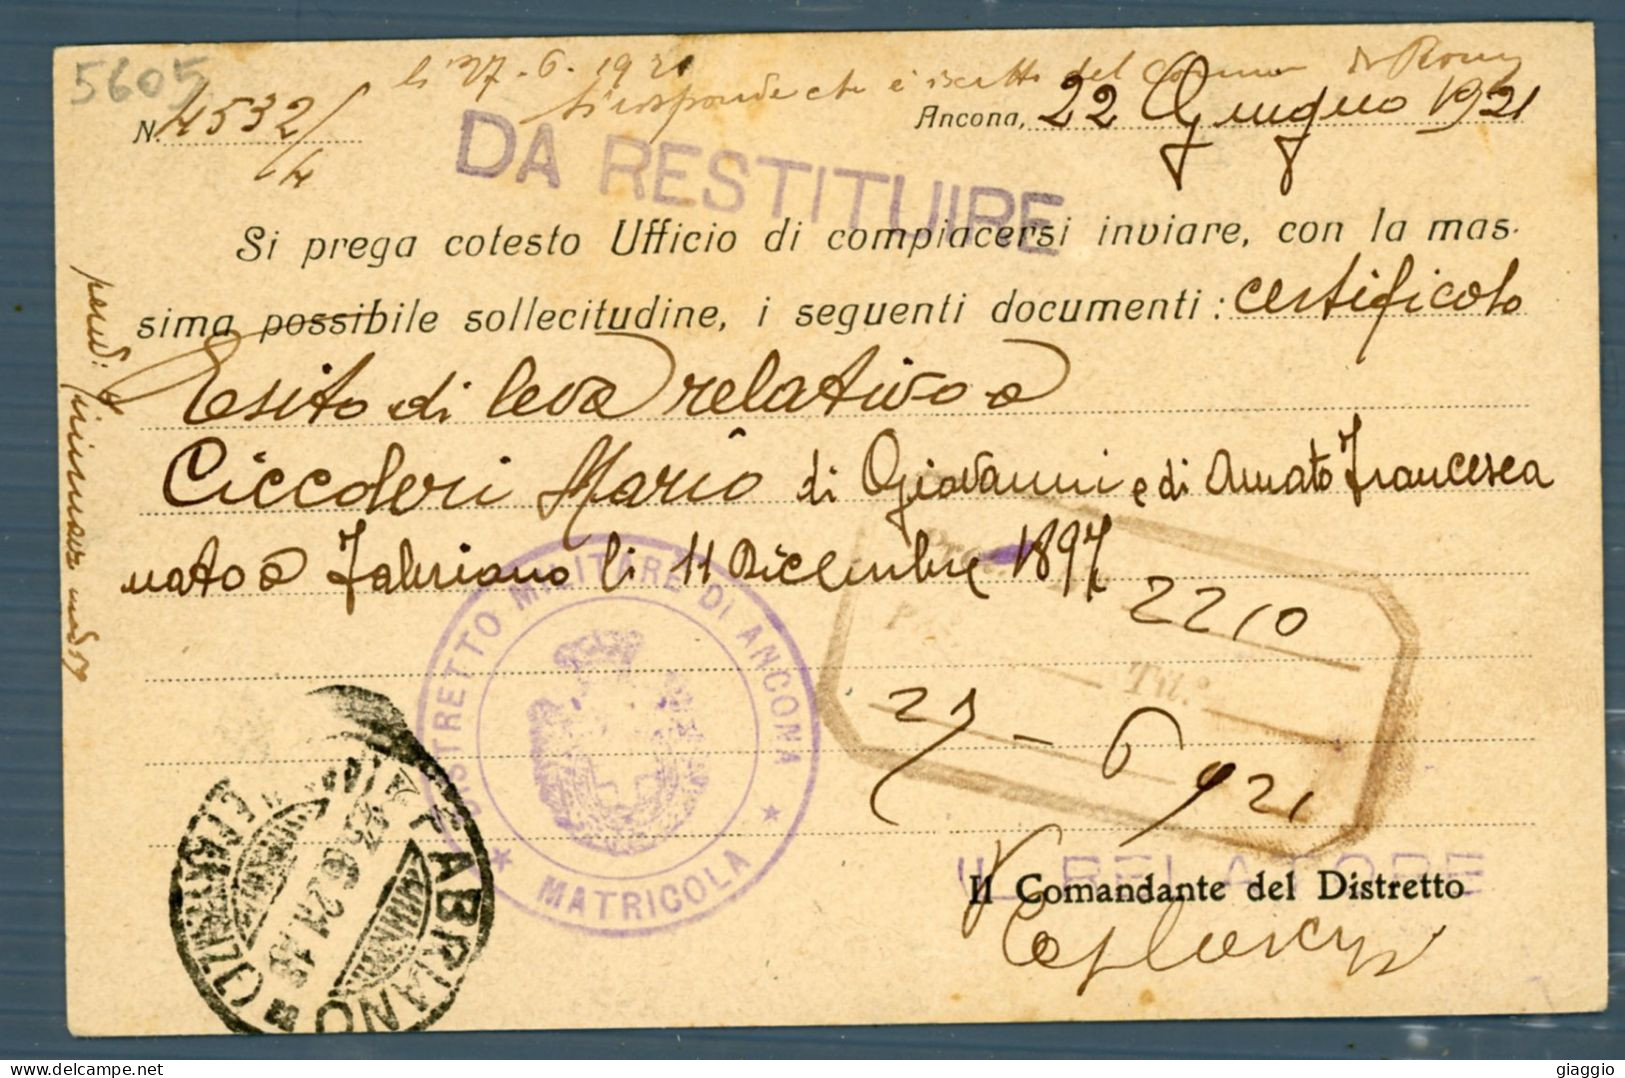 5605
li 27-6-1921
si risponde che è iscritto del Comune di Roma
N. 4532/14
Ancona, 22 Giugno 1921
DA RESTITUIRE
Si prega cotesto Ufficio di compiacersi inviare, con la mas-
sima possibile sollecitudine, i seguenti documenti: certificato
Esito di leva relativo a
Ciccoleri Mario di Giovanni e di Amato Francesca
nato a Fabriano li 11 Dicembre 1897
2210
Tit.°
27-6-921
DISTRETTO MILITARE DI ANCONA
MATRICOLA
FABRIANO
IL RELATORE
Il Comandante del Distretto
giaggio